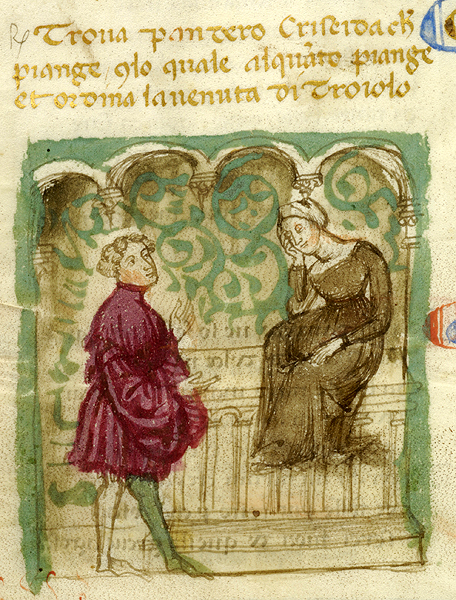 Troua pandero Criseida cħ
piange ꝯlo quale alquāto piange
et ordina la uenuta di Troiolo